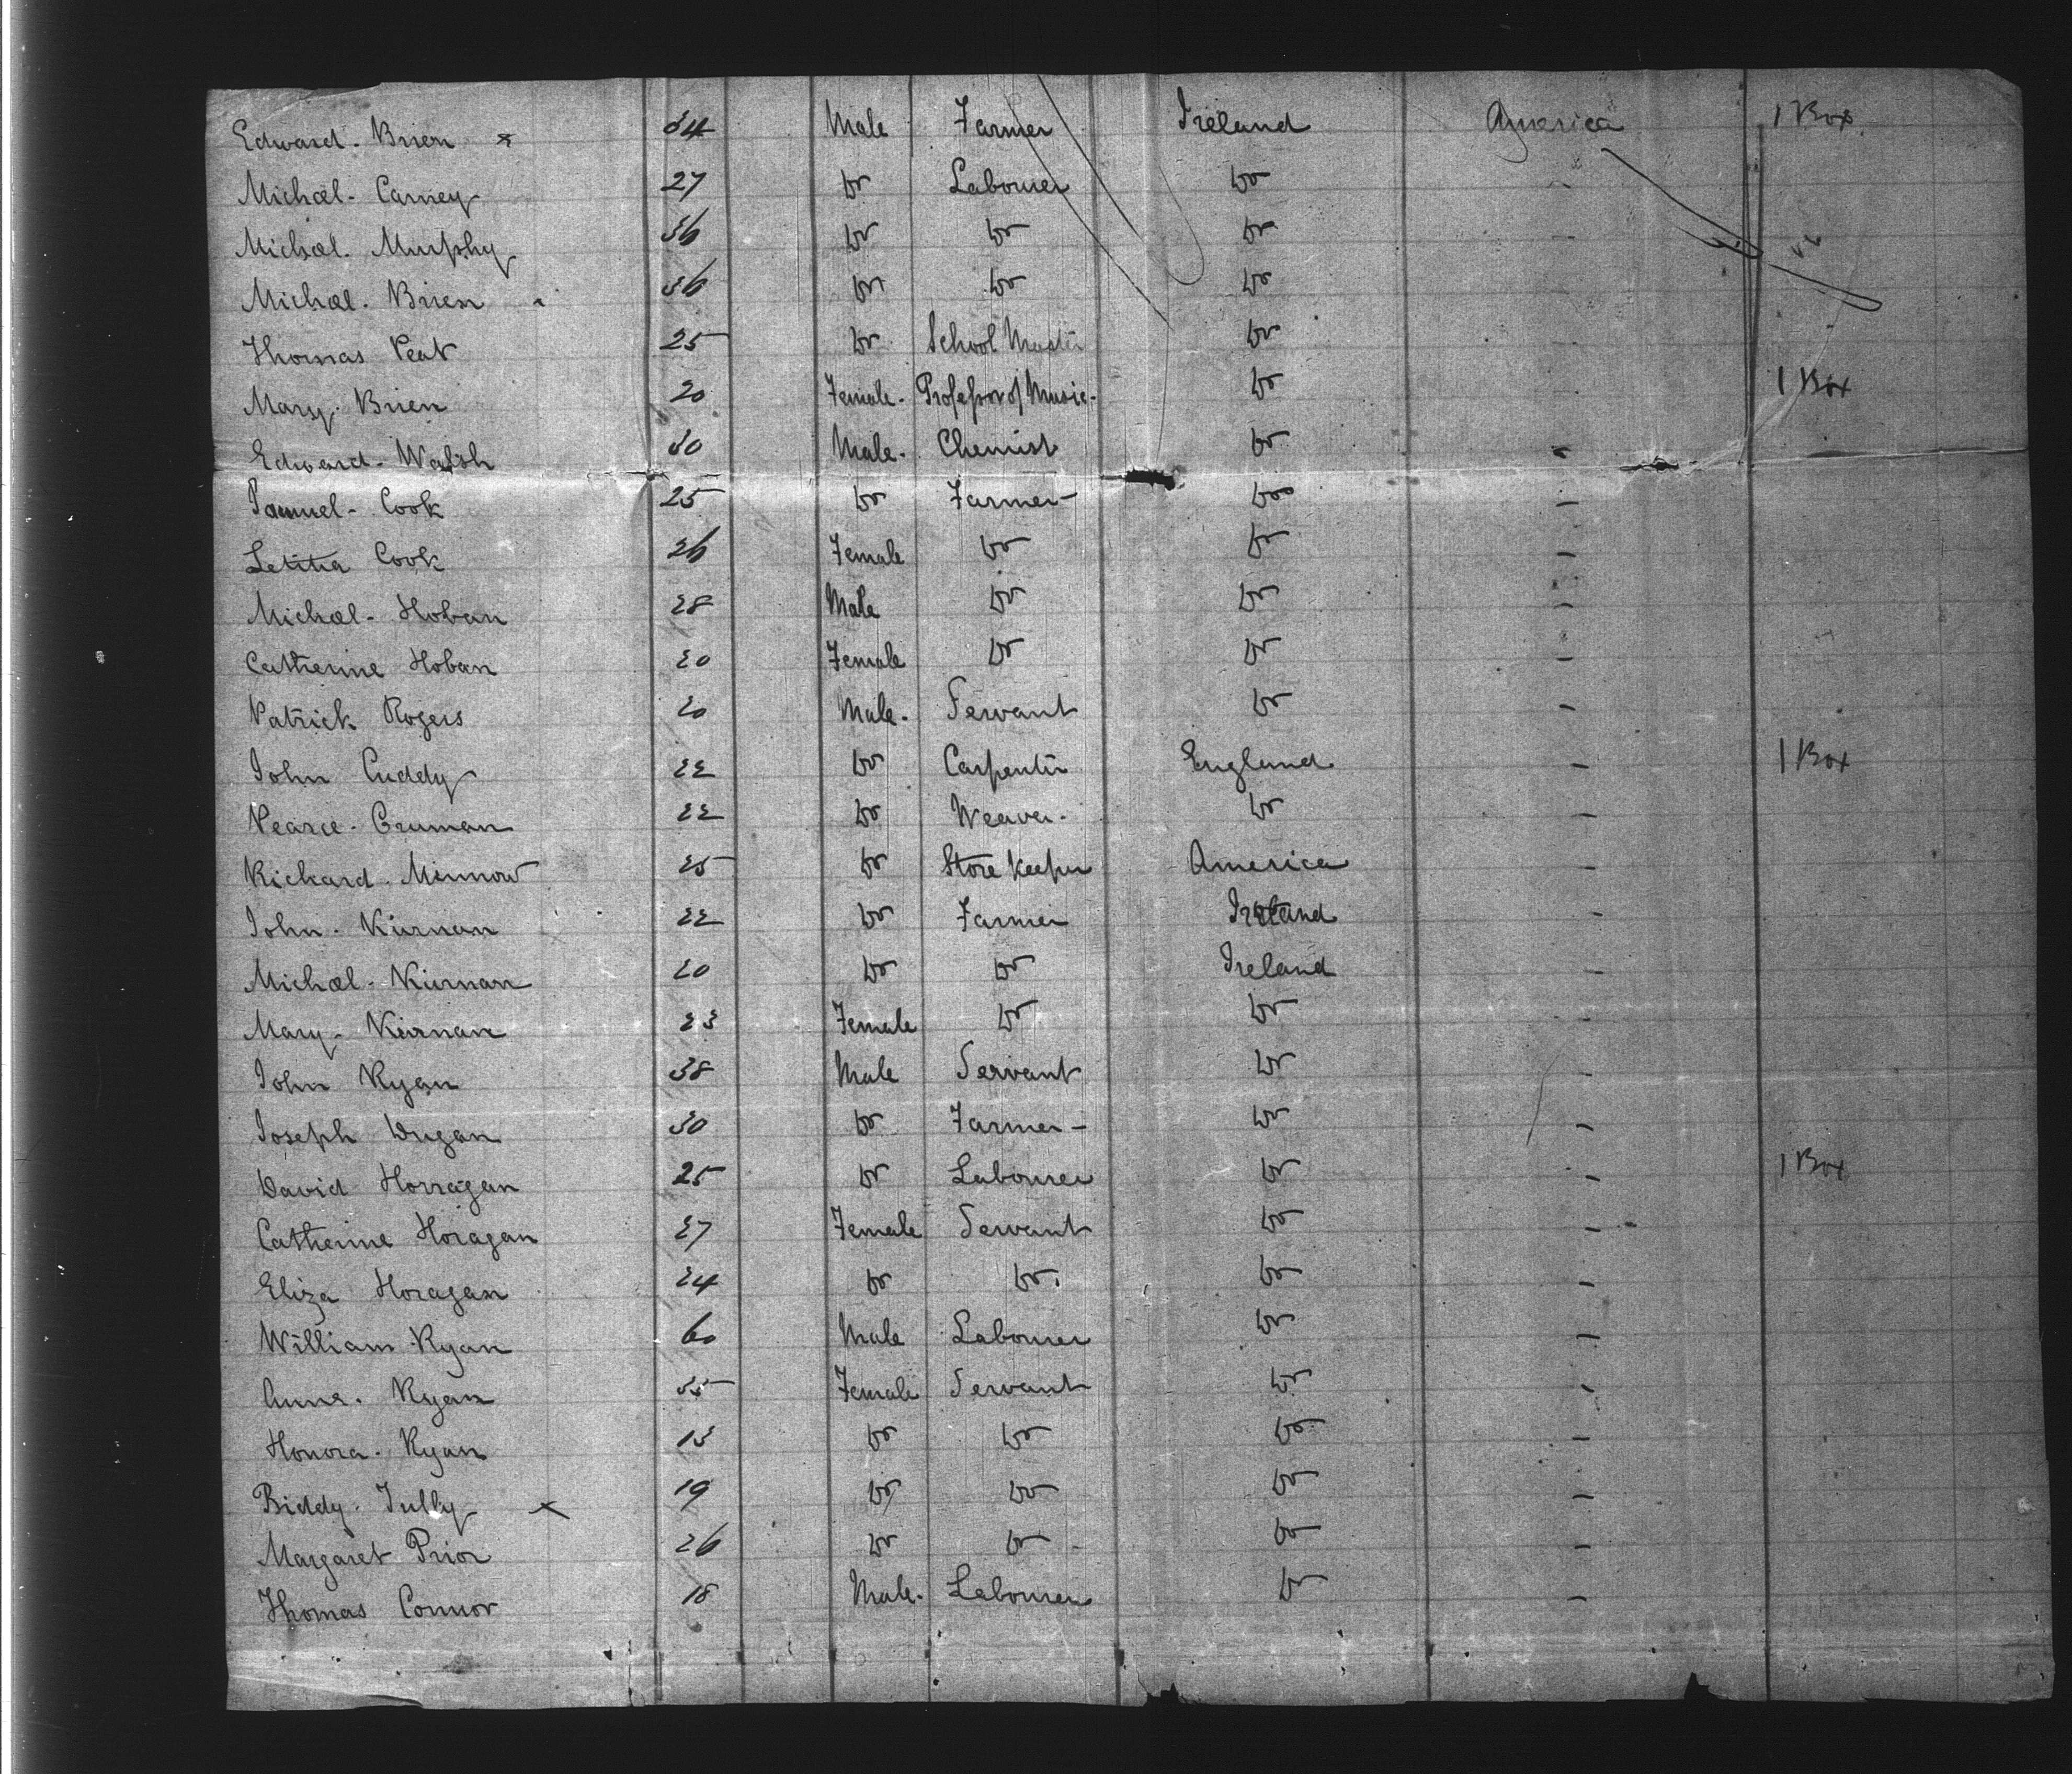 Edward. Brien x 34 Male Farmer Ireland America 1 Box
Michael. Carney 27 Do Labourer Do -
Michael. Murphy 36 Do Do Do -
Michael. Brien 36 Do Do Do
Thomas Peat 25 Do School Master Do
Mary. Brien 20 Female. Professor of Music. Do 1 Box
Edward. Walsh 30 Male. Chemist Do -
Samuel. Cook 25 Do Farmer Do -
Letitia Cook 26 Female Do Do -
Michael. Hoban 28 Male Do Do -
Catherine Hoban 20 Female Do Do -
Patrick Rogers 20 Male. Servant Do -
John Cuddy 22 Do Carpenter England - 1 Box
Pearce. Cruman 22 Do Weaver. Do -
Richard. Minnow 25 Do Store Keeper America -
John. Kiernan 22 Do Farmer Ireland -
Michael. Kiernan 20 Do Do Ireland -
Mary. Kiernan 23 Female Do Do -
John Ryan 38 Male Servant Do -
Joseph Dugan 30 Do Farmer - Do -
David Horragan 25 Do Labourer Do - 1 Box
Catherine Horagan 27 Female Servant Do -
Eliza Horagan 24 Do Do. Do -
William Ryan 60 Male Labourer Do -
Anne. Ryan 55 Female Servant Do -
Honora. Ryan 13 Do Do Do -
Biddy. Tully x 19 Do Do Do -
Margaret Prior 26 Do Do Do -
Thomas Connor 18 Male. Labourer Do -